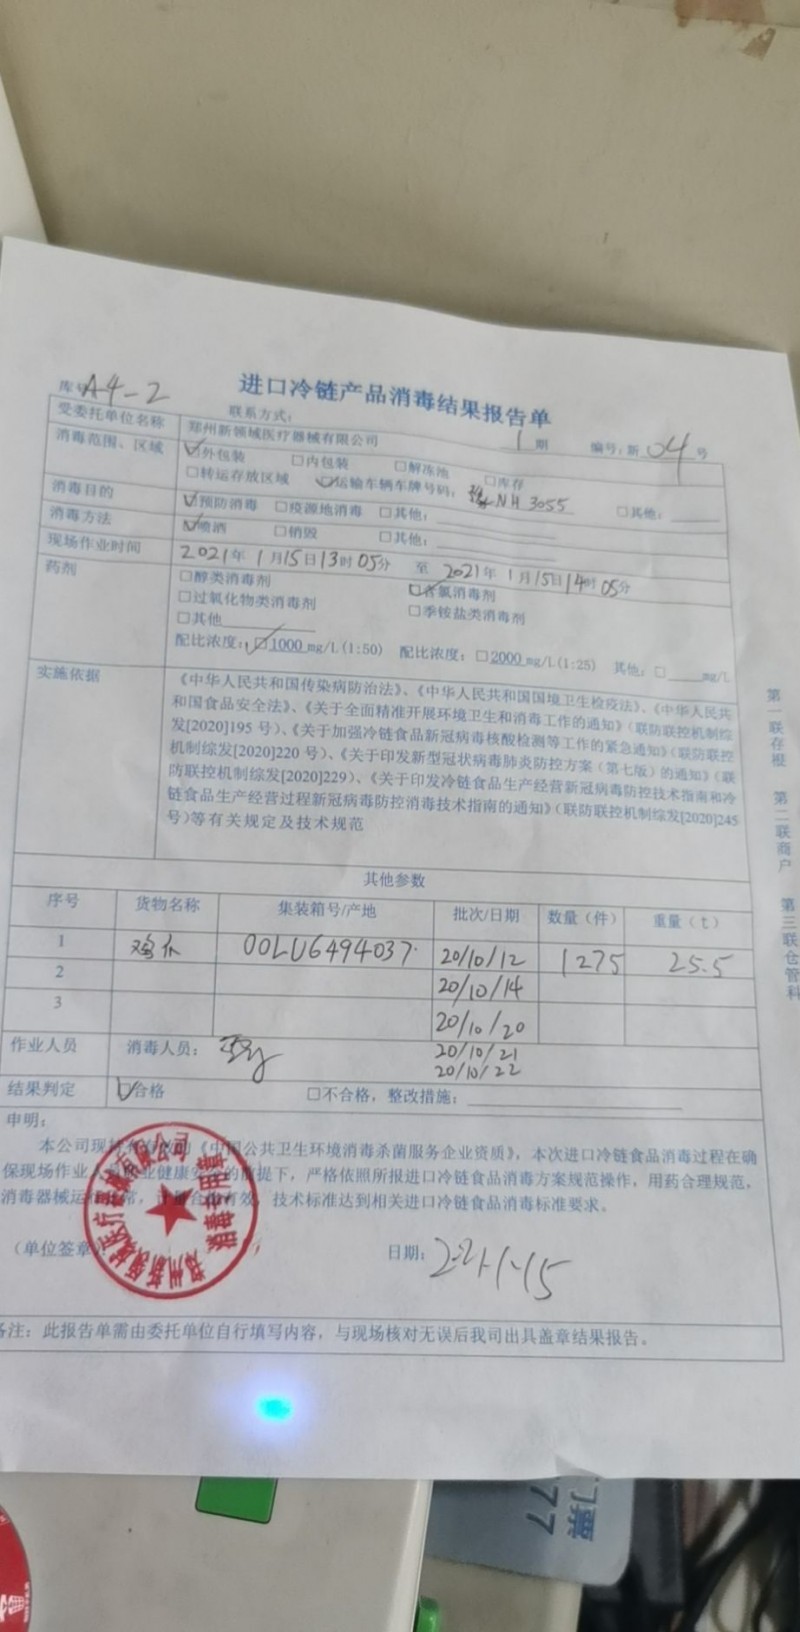 进口冷链产品消毒结果报告单
库号A4-2 联系方式: 1期 编号:新04号
受委托单位名称 郑州新领域医疗器械有限公司
消毒范围、区域 ☑外包装 □内包装 □解冻池 □库存
□转运存放区域 ☑运输车辆车牌号码: NH 3055 □其他:
消毒目的 ☑预防消毒 □疫源地消毒 □其他:
消毒方法 ☑喷洒 □销毁 □其他:
现场作业时间 2021年1月15日13时05分 至 2021年1月15日14时05分
药剂 □醇类消毒剂 ☑含氯消毒剂
□过氧化物类消毒剂 □季铵盐类消毒剂
□其他
配比浓度:☑1000 mg/L(1:50) 配比浓度:□2000 mg/L(1:25) 其他:□ mg/L
实施依据 《中华人民共和国传染病防治法》、《中华人民共和国国境卫生检疫法》、《中华人民共
和国食品安全法》、《关于全面精准开展环境卫生和消毒工作的通知》(联防联控机制综
发[2020]195号)、《关于加强冷链食品新冠病毒核酸检测等工作的紧急通知》(联防联控
机制综发[2020]220号)、《关于印发新型冠状病毒肺炎防控方案(第七版)的通知》(联
防联控机制综发[2020]229)、《关于印发冷链食品生产经营新冠病毒防控技术指南和冷
链食品生产经营过程新冠病毒防控消毒技术指南的通知》(联防联控机制综发[2020]245
号)等有关规定及技术规范
其他参数
序号 货物名称 集装箱号/产地 批次/日期 数量(件) 重量(t)
1 鸡爪 OOLU6494037 20/10/12 1275 25.5
2 20/10/14
3 20/10/20
作业人员 消毒人员: 20/10/21
20/10/22
结果判定 ☑合格 □不合格,整改措施:
申明:
本公司现持有有效的《中国公共卫生环境消毒杀菌服务企业资质》,本次进口冷链食品消毒过程在确
保现场作业人员职业健康安全的前提下,严格依照所报进口冷链食品消毒方案规范操作,用药合理规范,
消毒器械运行正常,计量合格有效,技术标准达到相关进口冷链食品消毒标准要求。
(单位签章) 日期: 2021-1-15
郑州新领域医疗器械有限公司
消毒专用章
备注:此报告单需由委托单位自行填写内容,与现场核对无误后我司出具盖章结果报告。
第一联存根 第二联商户 第三联仓管科
门票
77